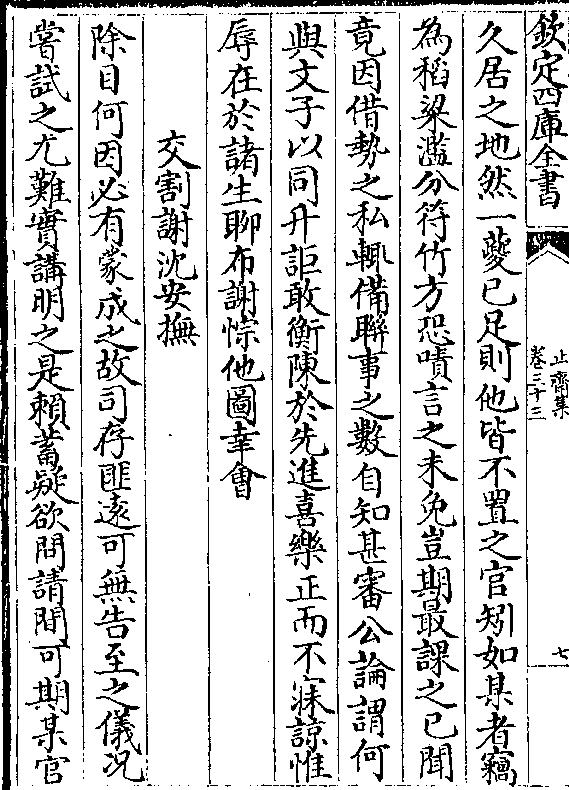 欽定四庫全書
止齋集
卷三十三
七
久居之地然一夔已足則他皆不置之官矧如某者竊
為稻粱濫分符竹方恐嘖言之未免豈期最課之已聞
竟因借勢之私輒備聯事之數自知甚審公論謂何
與文子以同升詎敢衡陳於先進喜樂正而不寐諒惟
辱在於諸生聊布謝悰他圖幸會
交割謝沈安撫
除目何因必有蒙成之故司存匪遠可無告至之儀况
嘗試之尤難實講明之是賴蓄疑欲問請間可期某官